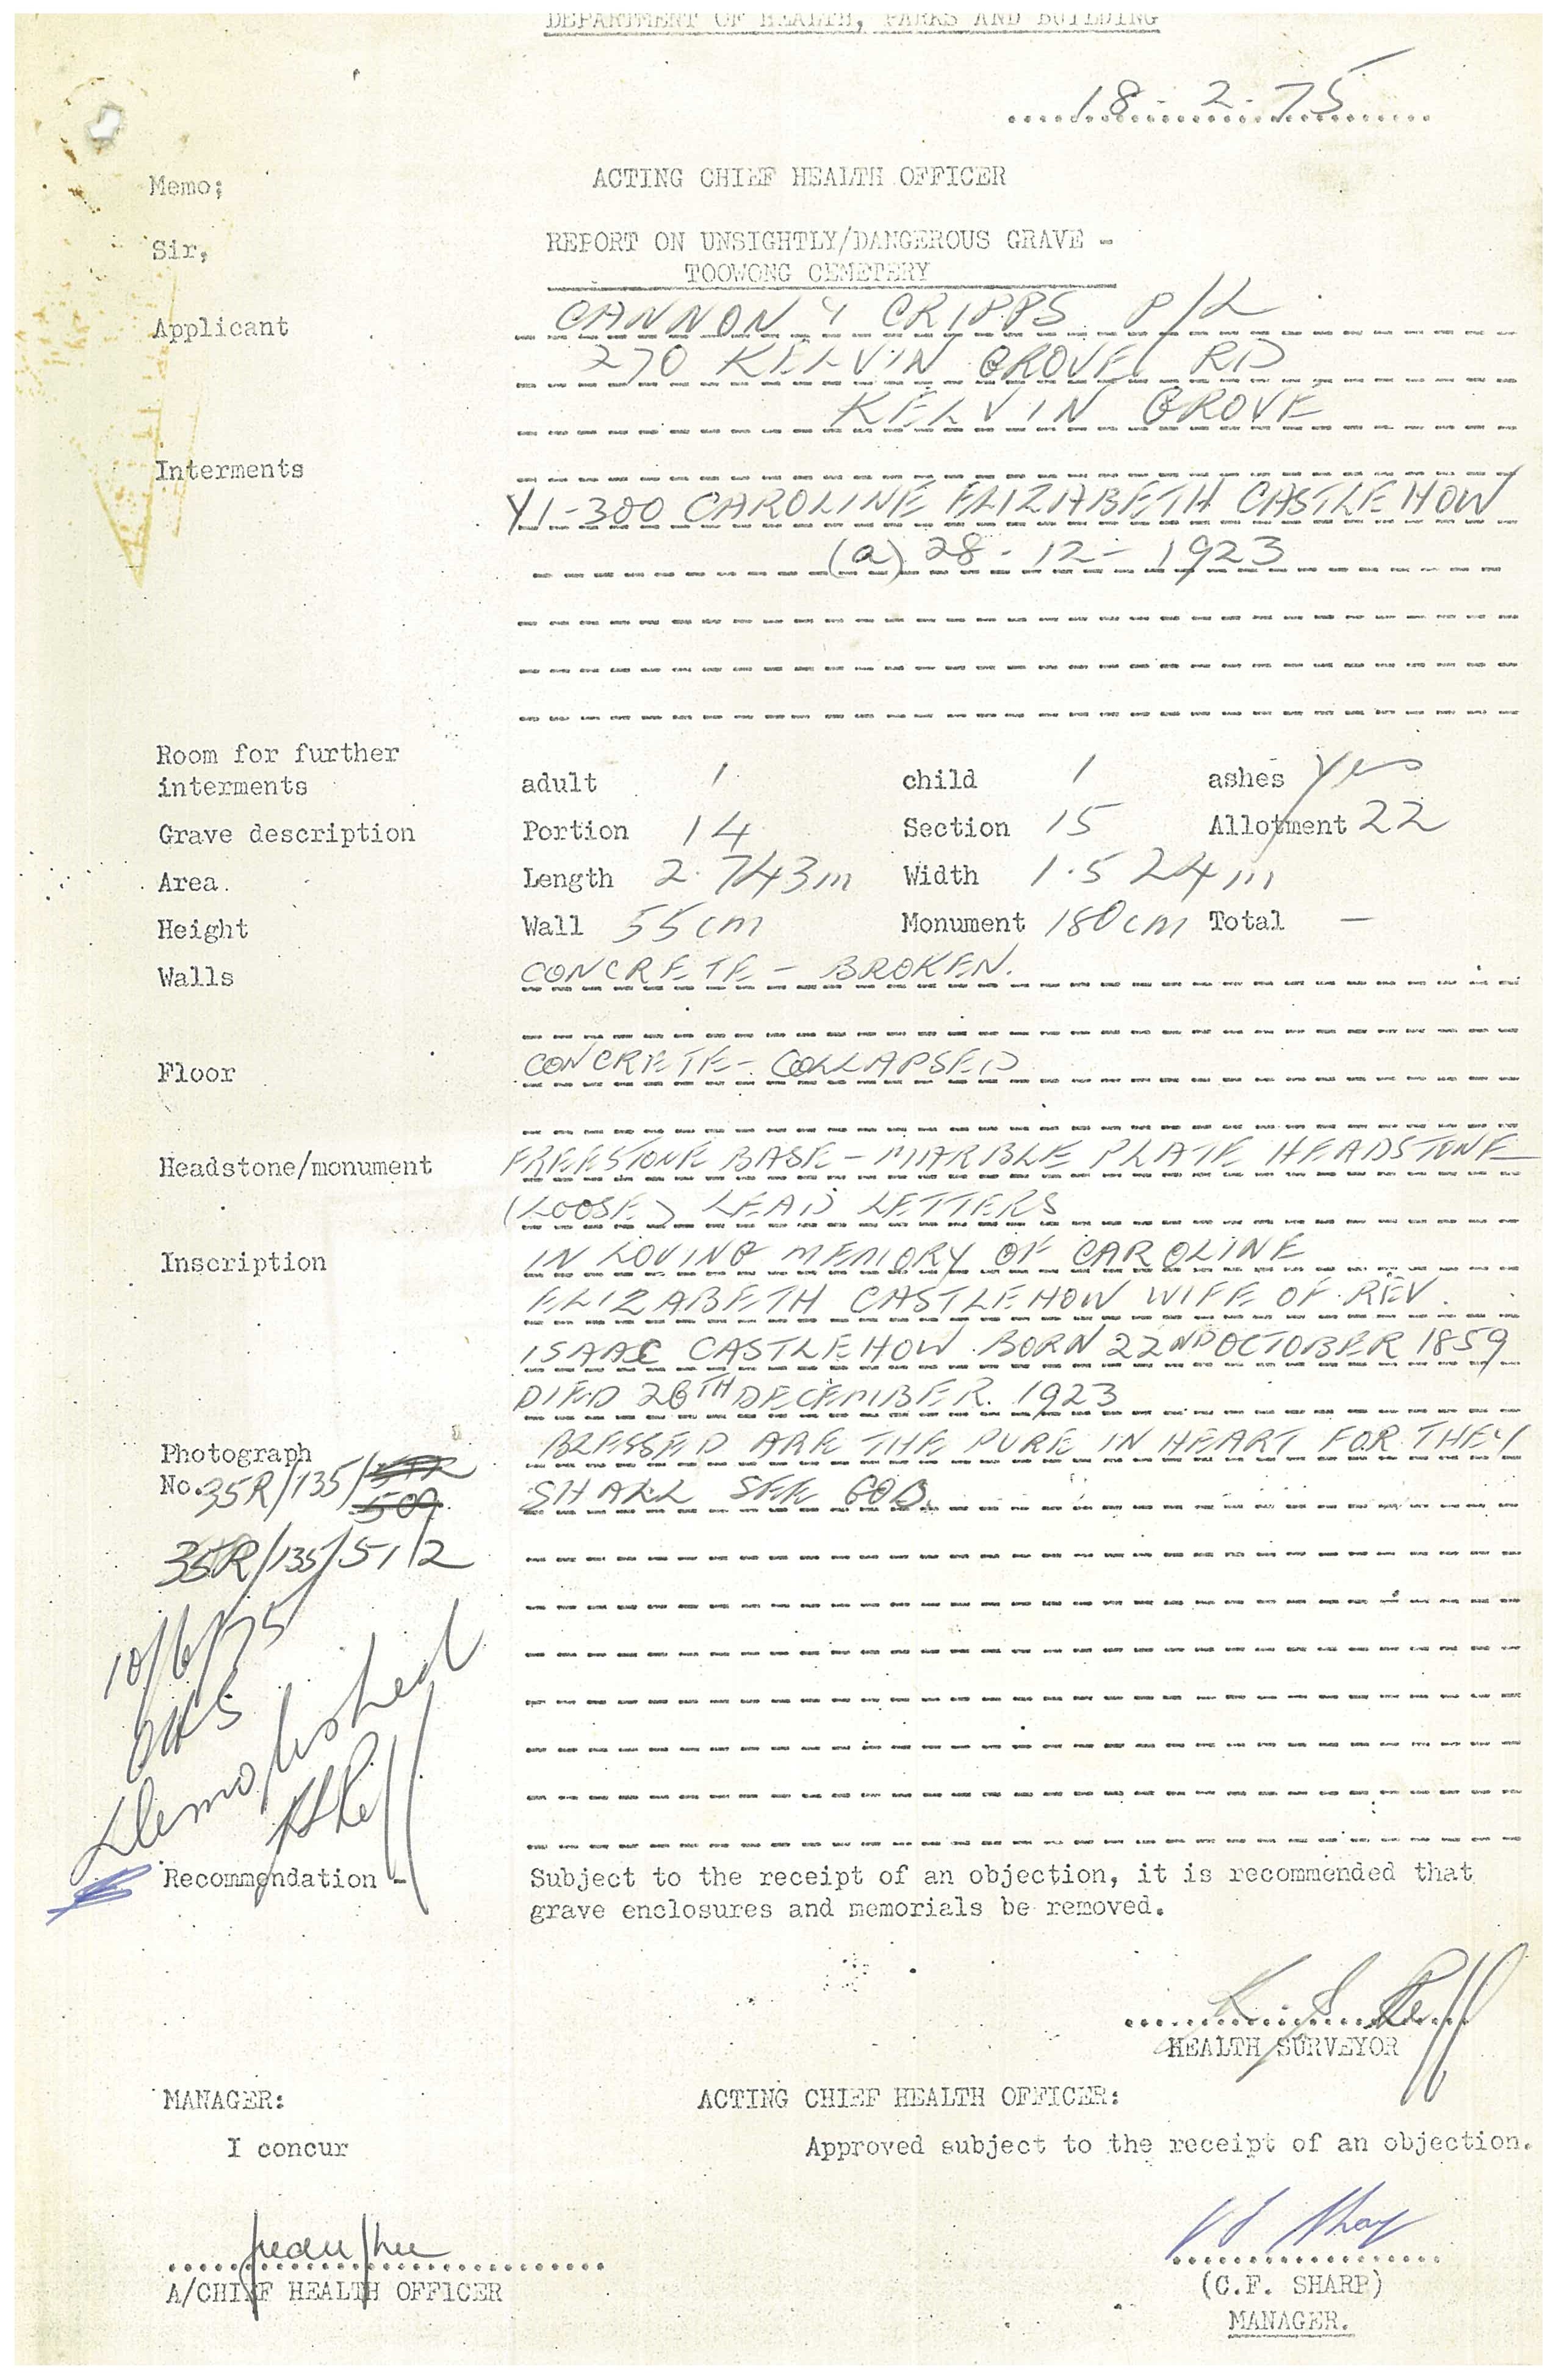 DEPARTMENT OF HEALTH, PARKS AND BUILDING
18-2-75
Memo; ACTING CHIEF HEALTH OFFICER
Sir, REPORT ON UNSIGHTLY/DANGEROUS GRAVE -
TOOWONG CEMETERY
Applicant CANNON & CRIPPS P/L
270 KELVIN GROVE RD
KELVIN GROVE
Interments
Y1-300 CAROLINE ELIZABETH CASTLEHOW
(a) 28-12-1923
Room for further
interments adult 1 child 1 ashes yes
Grave description Portion 14 Section 15 Allotment 22
Area. Length 2.743m Width 1.524m
Height Wall 55cm Monument 180cm Total -
Walls CONCRETE - BROKEN.
Floor CONCRETE - COLLAPSED
Headstone/monument FREESTONE BASE - MARBLE PLATE HEADSTONE
(LOOSE) LEAD LETTERS
Inscription IN LOVING MEMORY OF CAROLINE
ELIZABETH CASTLEHOW WIFE OF REV.
ISAAC CASTLEHOW BORN 22ND OCTOBER 1859
DIED 26TH DECEMBER. 1923
Photograph BLESSED ARE THE PURE IN HEART FOR THEY
No. 35R/135/ 509 SHALL SEE GOD.
35R/135/51/2
10/6/75
Demolished
Recommendation - Subject to the receipt of an objection, it is recommended that
grave enclosures and memorials be removed.
HEALTH SURVEYOR
MANAGER: ACTING CHIEF HEALTH OFFICER:
I concur Approved subject to the receipt of an objection.
A/CHIEF HEALTH OFFICER (C.F. SHARP)
MANAGER.